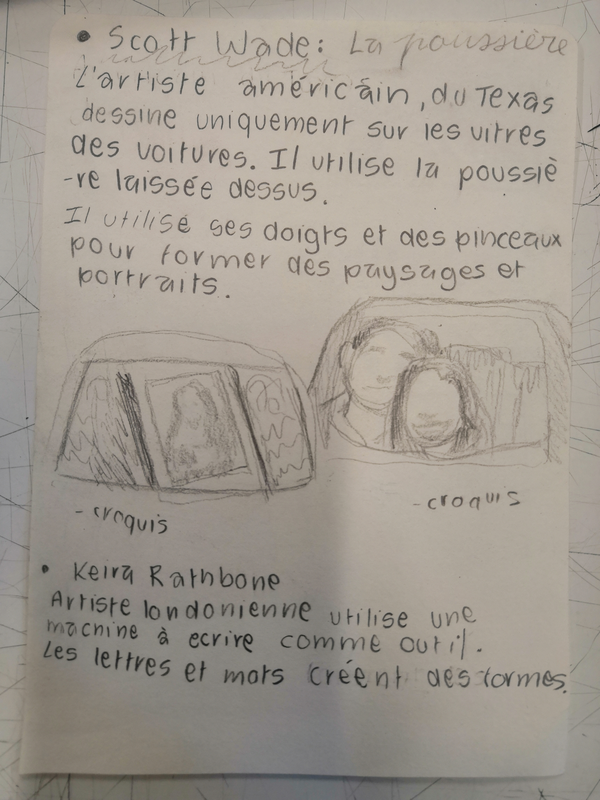 • Scott Wade: La poussière
L'artiste américain, du Texas
dessine uniquement sur les vitres
des voitures. Il utilise la poussiè
-re laissée dessus.
Il utilise ses doigts et des pinceaux
pour former des paysages et
portraits.
- croquis
- croquis
• Keira Rathbone
Artiste londonienne utilise une
machine à ecrire comme outil.
Les lettres et mots créent des formes.